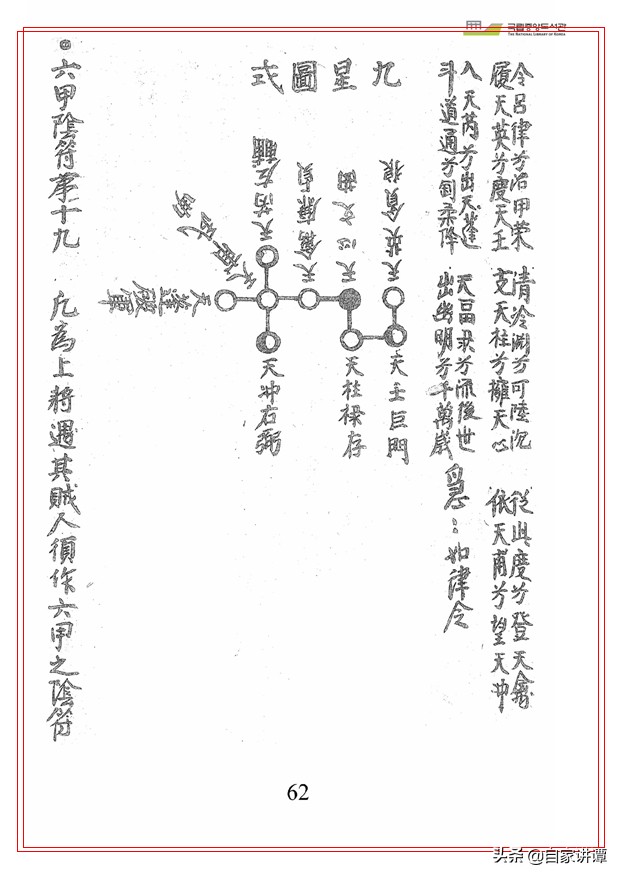 국립중앙도서관
THE NATIONAL LIBRARY OF KOREA
令呂律兮治甲荣 清冷渊兮可陸沉 從此度兮登天禽
履天英兮度天壬 支天柱兮擁天心 依天甫兮望天冲
入天芮兮出天蓬 天畐
兮流後世
斗道通兮剛柔降 出幽明兮千萬歲 急〻如律令
九星圖式
天英貪狼
天壬巨門
天心文曲
天柱祿存
天禽廉貞
天芮左輔
天冲右弼
天蓬
軍
六甲陰符第十九 凡為上將遇其賊人須作六甲之陰符
62
头条 @自家讲谭